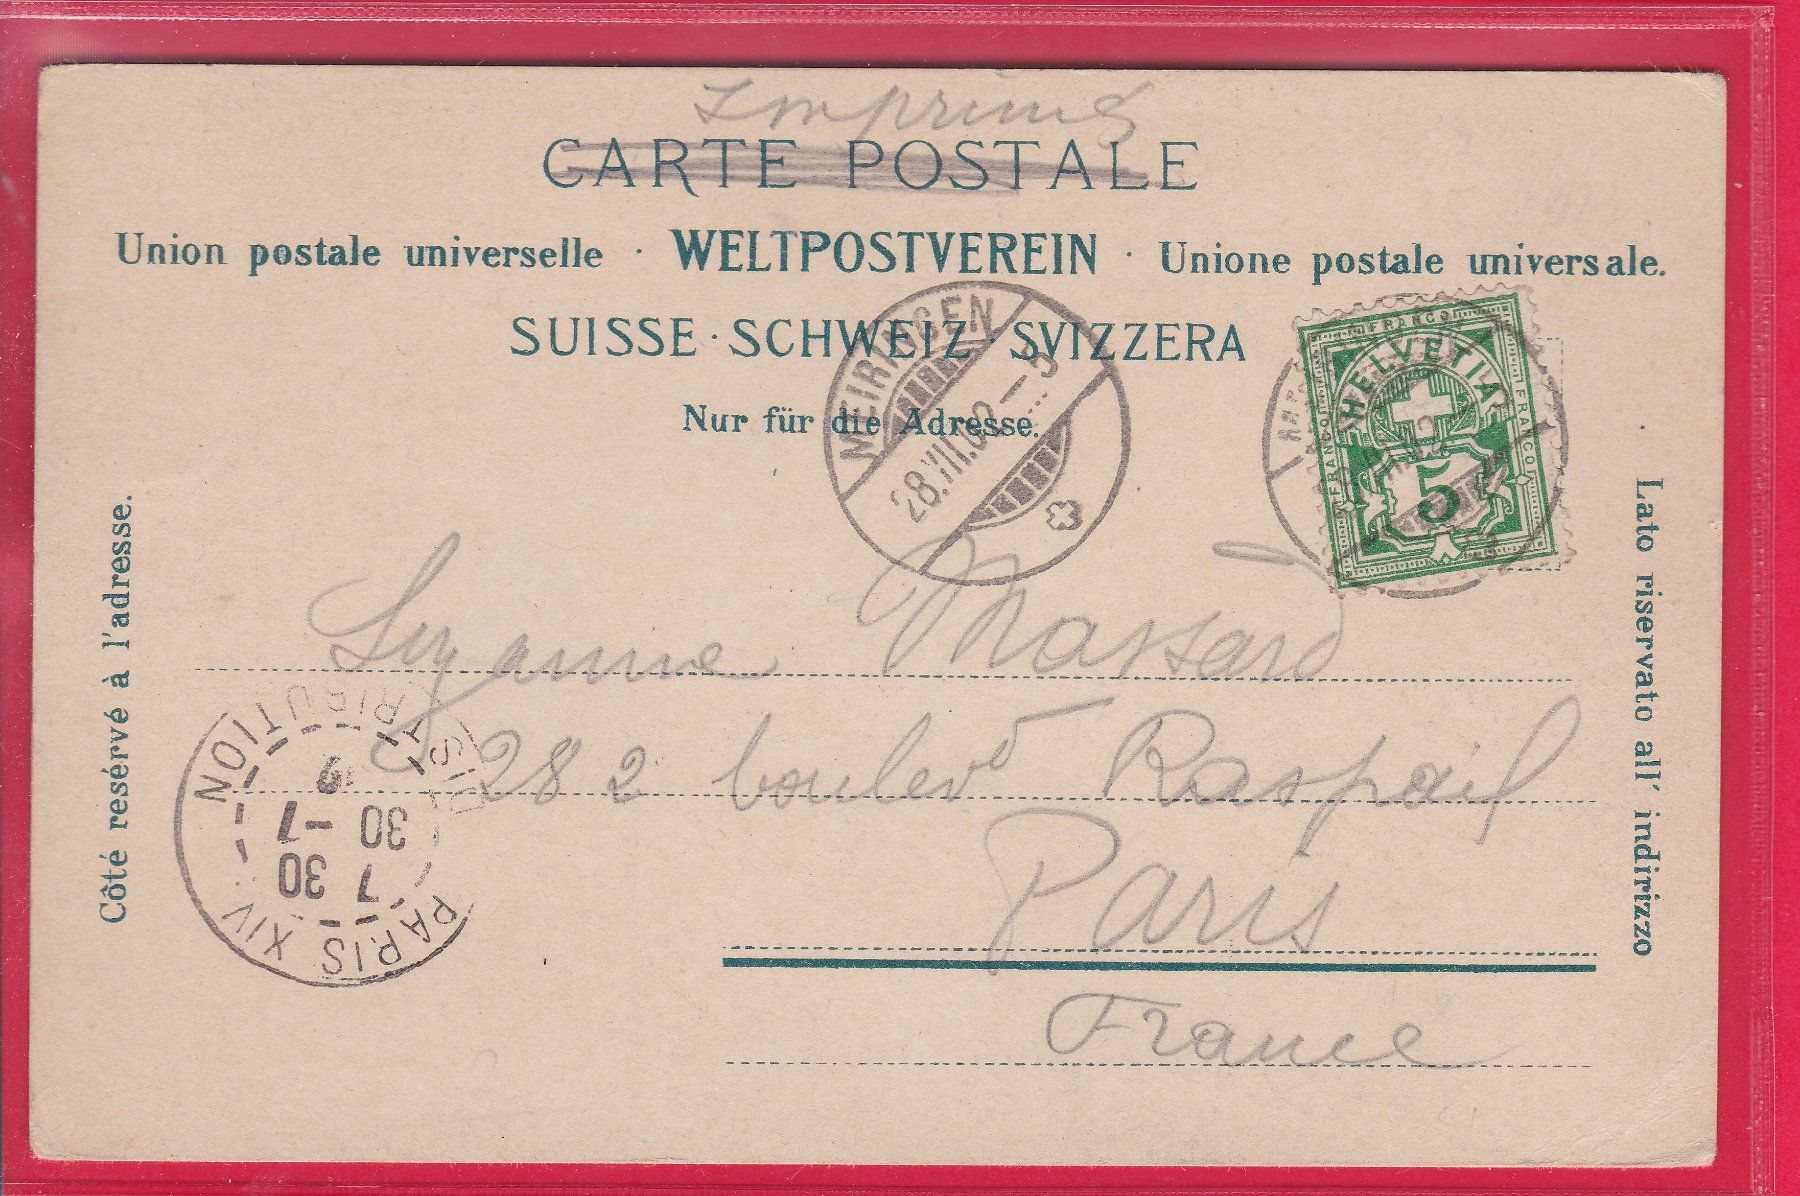 Imprimé
CARTE POSTALE
Union postale universelle · WELTPOSTVEREIN · Unione postale universale.
SUISSE · SCHWEIZ · SVIZZERA
Nur für die Adresse.
MEIRINGEN
28.VII.02-5
FRANCO
HELVETIA
FRANCO
FRANCO
5
Côté resérvé à l'adresse.
Lato riservato all' indirizzo
Suzanne Massard
282 boulevd Raspail
Paris
France
PARIS XIV
DISTRIBUTION
7 30
30 -7